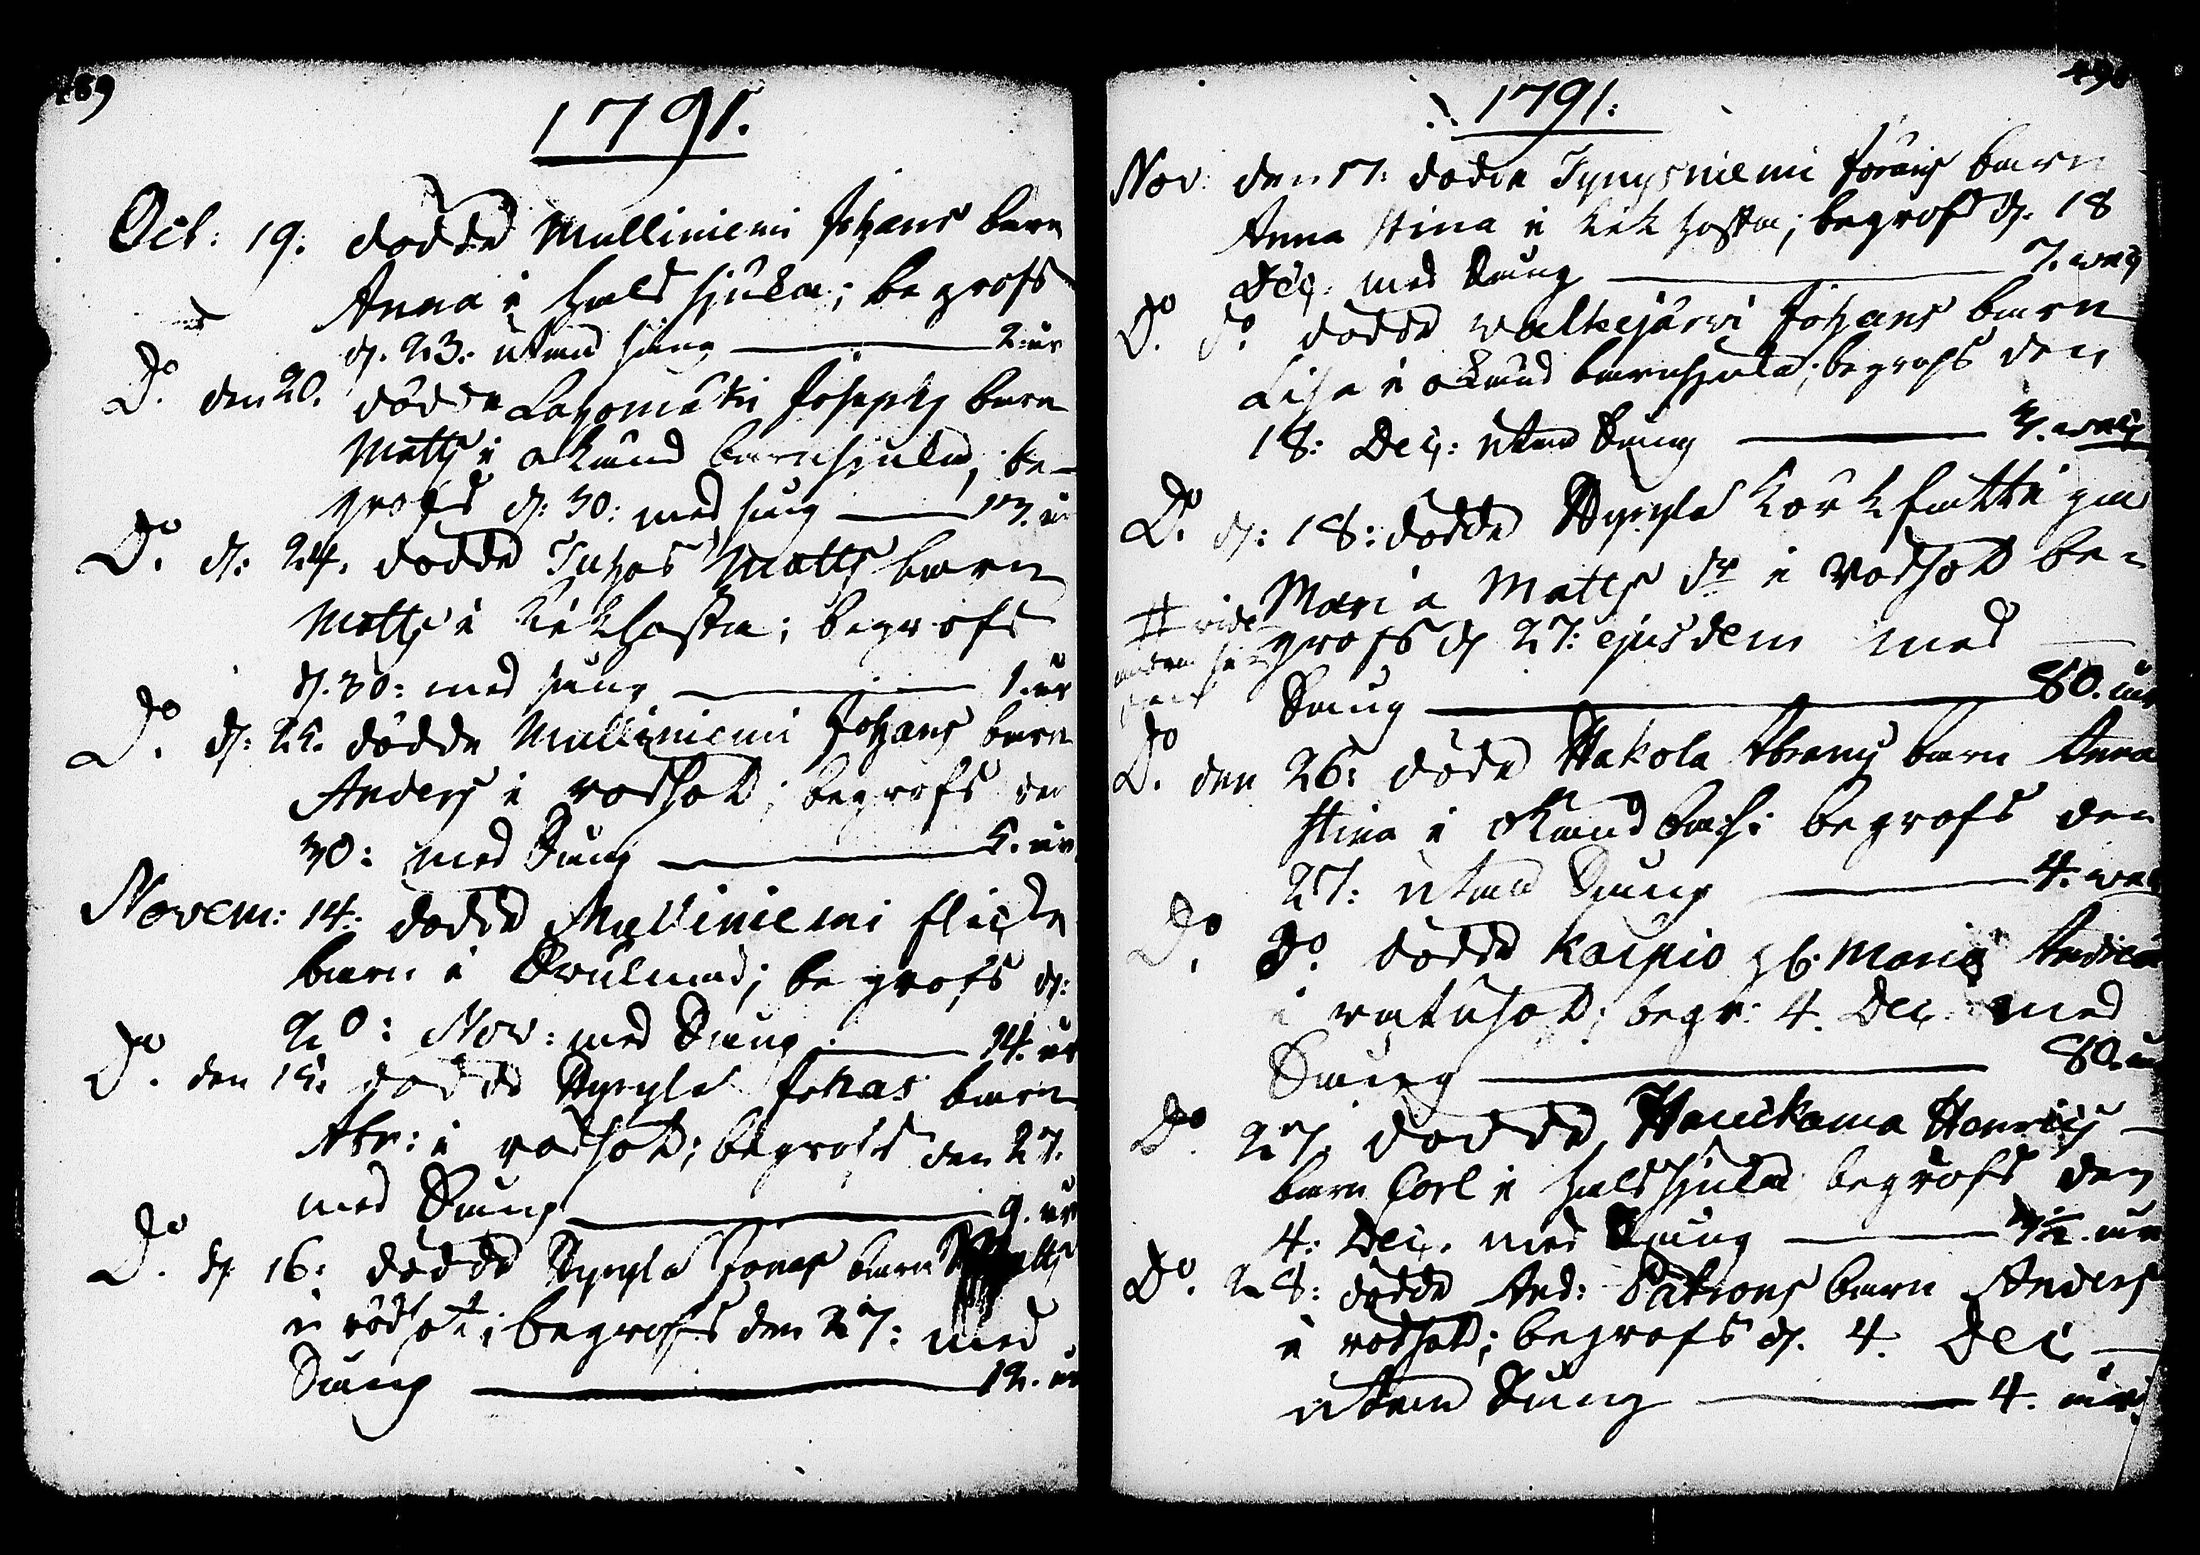 489
1791.
Oct: 19: dödde Mulliniemi Johans barn
Anna i halssjuka; begrofs
d. 23. utan sång — 2. år
Do. den 20. dödde Lapomäki Josephs barn
Matts i okänd barnsjuka; be-
grofs d: 30: med sång — 13. år
Do. d: 24. dödde Juhos Matts barn
Matts i kikhosta; begrofs
d. 30: med sång — 1. år
Do. d: 25. dödde Mulliniemi Johans barn
Anders i rodsot; begrofs den
30: med Sång — 5. år
Novem: 14: dödde Mulliniemi flicke
barn i; begrofs d:
20: Nov: med Sång — 14. år
Do. den 15. dödde Hyryla Johas barn
Abr: i rodsot; begrofs den 27.
med Sång — 9. år
Do. d. 16: dödde Hyryla Jonas barn Matts
i rödsot; begrofs den 27: med
Sång — 12. år
490
1791:
Nov: den 17: dödde Tynysniemi Görans barn
Anna Stina i kikhosta; begrofs d. 18
Dec. med Sång — 7. wek
Do. do dödde Walkejärwi Johans barn
Lisa i okänd barnsjuka; begrofs den
18: Dec: utan Sång — 3. wek
Do. d: 18: dödde Hyryla
Maria Matts dr i rodsot be-
grofs d 27: ejusdem med
Sång — 80. år
Do. den 26: döde Hakola Abrams barn Anna
Stina i okänd; begrofs den
27: utan Sång — 4. wek
Do. Do. dödde Karpio Maria
i; begr: 4. Dec. med
Sång — 80. år
Do. 27. dödde Haukama Henrics
barn Carl i halssjuka begrofs den
4: Dec. med Sång — 3 1/2. år
Do. 28: dödde And: Påtrons barn Anders
i rodsot; begrofs d. 4. Dec
utan Sång — 4. år